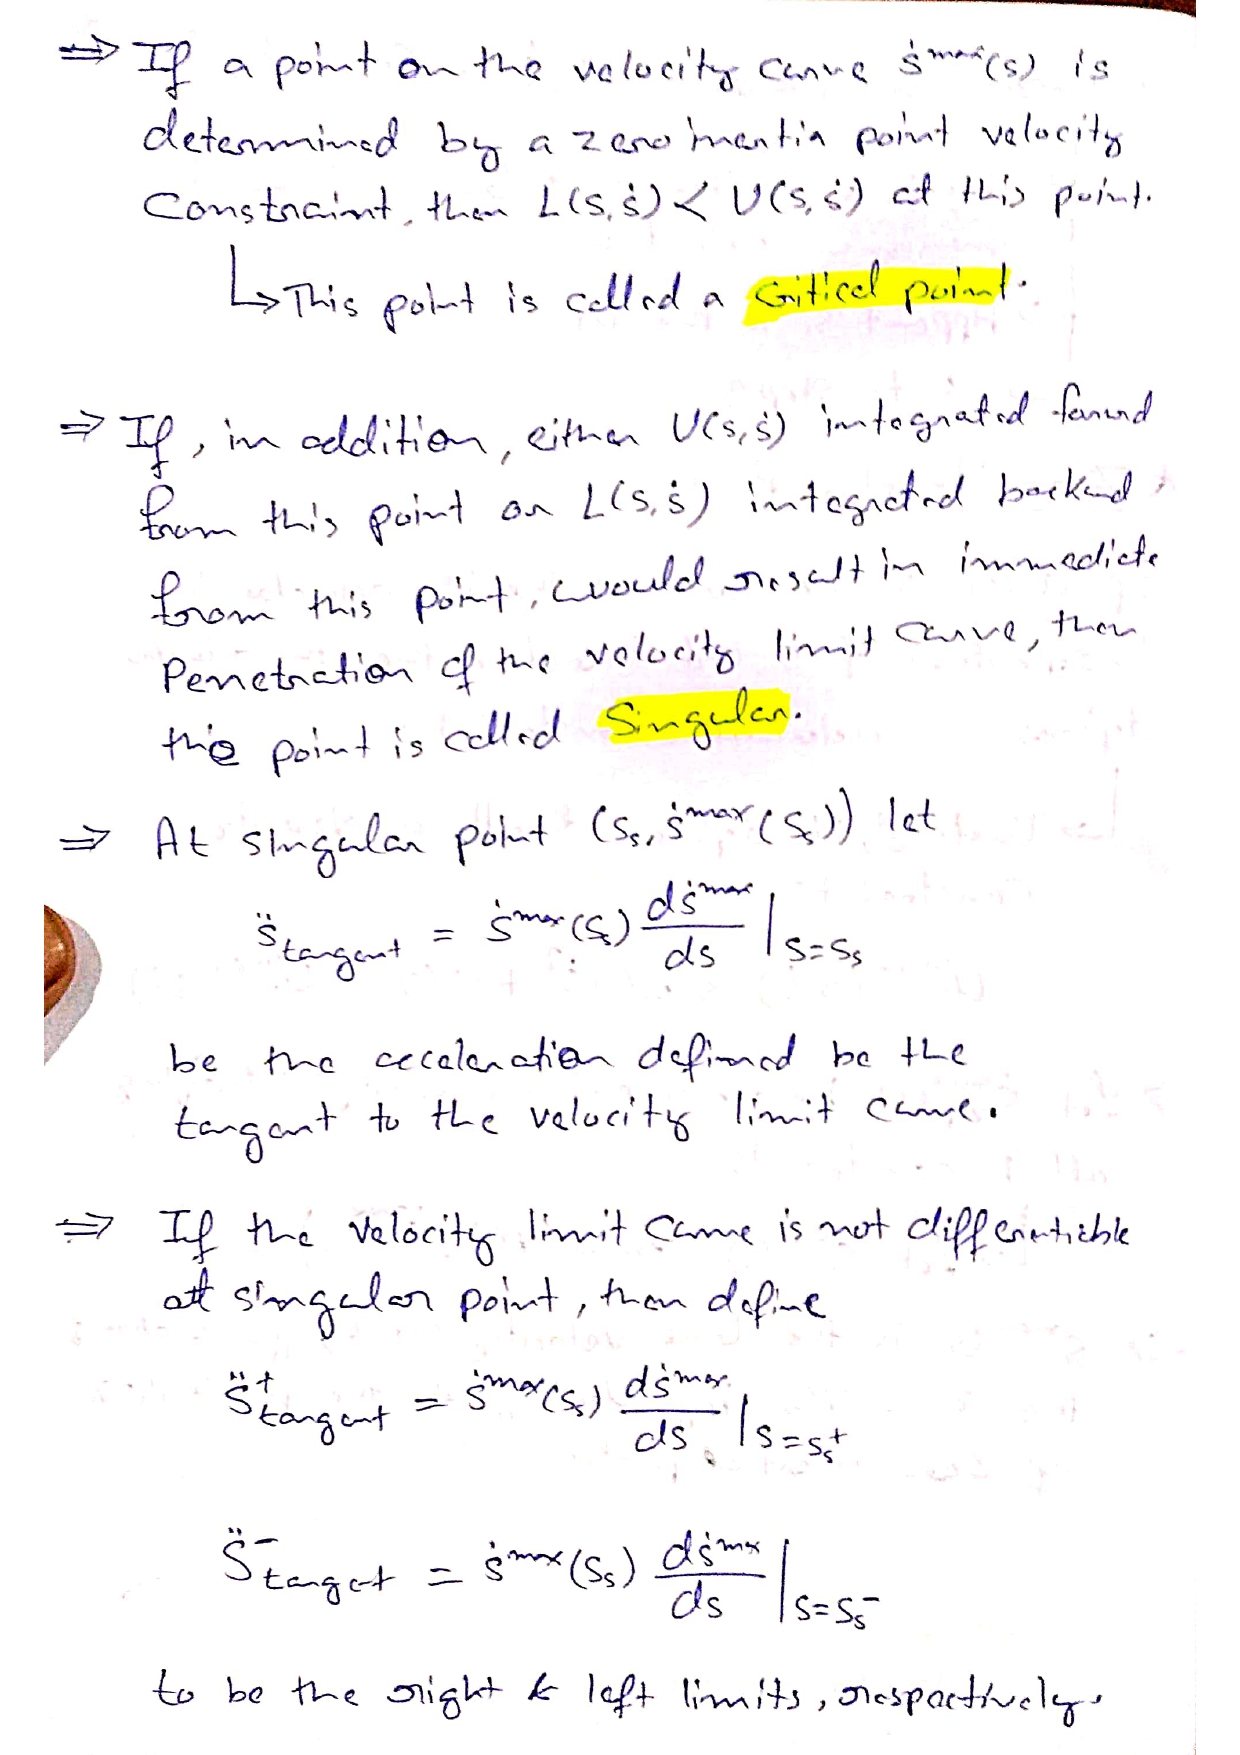 ⇒ If a point on the velocity curve ṡᵐᵃˣ(s) is
determined by a zero inertia point velocity
Constraint, then L(s,ṡ) < U(s,ṡ) at this point.
↳ This point is called a Critical point.
⇒ If, in addition, either U(s,ṡ) integrated forward
from this point or L(s,ṡ) integrated backward
from this point, would result in immediate
Penetration of the velocity limit curve, then
the point is called Singular.
⇒ At singular point (sₛ, ṡᵐᵃˣ(sₛ)) let
s̈ tangent = ṡᵐᵃˣ(sₛ) dṡᵐᵃˣ/ds |s=sₛ
be the acceleration defined be the
tangent to the velocity limit curve.
⇒ If the velocity limit curve is not differentiable
at singular point, then define
s̈⁺ tangent = ṡᵐᵃˣ(sₛ) dṡᵐᵃˣ/ds |s=sₛ⁺
s̈⁻ tangent = ṡᵐᵃˣ(sₛ) dṡᵐᵃˣ/ds |s=sₛ⁻
to be the right & left limits, respectively.